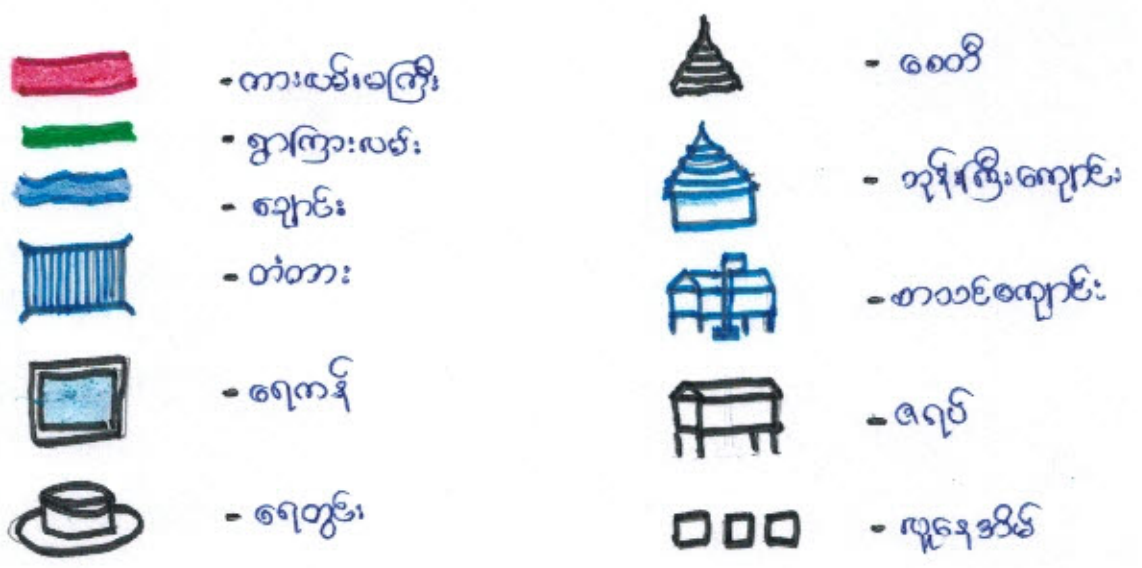 - ကားလမ်းမကြီး
- ရွာကြားလမ်း
- ချောင်း
- တံတား
- ရေကန်
- ရေတွင်း
- စေတီ
- ဘုန်းကြီးကျောင်း
- စာသင်ကျောင်း
- ဇရပ်
- လူနေအိမ်